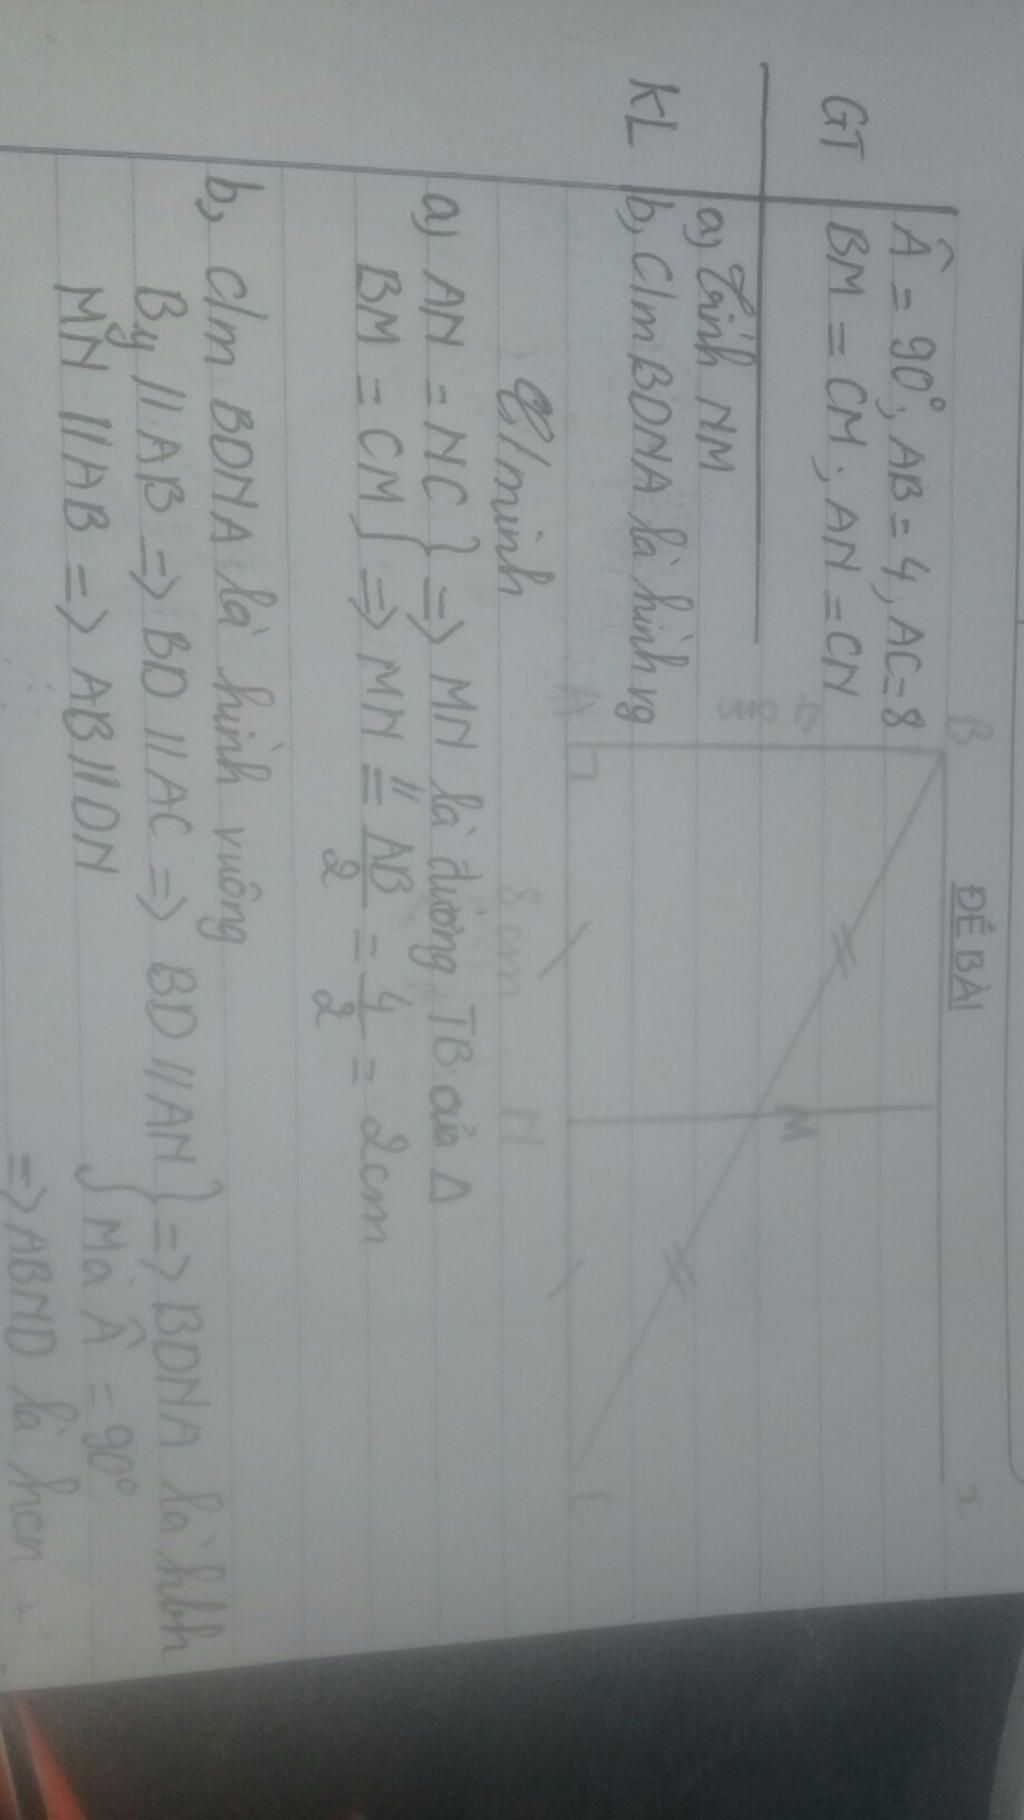 ĐỀ BÀI
GT
Â = 90°, AB = 4, AC = 8
BM = CM; AN = CN
KL
a, Tính NM
b, C/m BDNA là hình vg
B
x
M
A
8 cm
N
C
C/minh
a, AN = NC } => MN là đường TB của Δ
BM = CM } => MN // = AB/2 = 4/2 = 2cm
b, C/m BDNA là hình vuông
By // AB => BD // AC => BD // AN } => BDNA là hbh
MN // AB => AB // DN } Mà Â = 90°
=> ABND là hcn